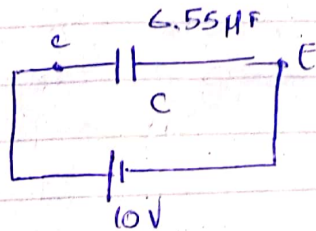 6.55μF
c
E
C
10V